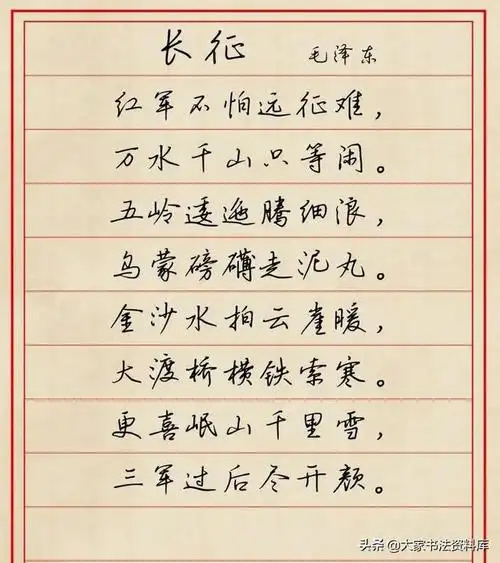 长征 毛泽东
红军不怕远征难，
万水千山只等闲。
五岭逶迤腾细浪，
乌蒙磅礴走泥丸。
金沙水拍云崖暖，
大渡桥横铁索寒。
更喜岷山千里雪，
三军过后尽开颜。
头条@大家书法资料库